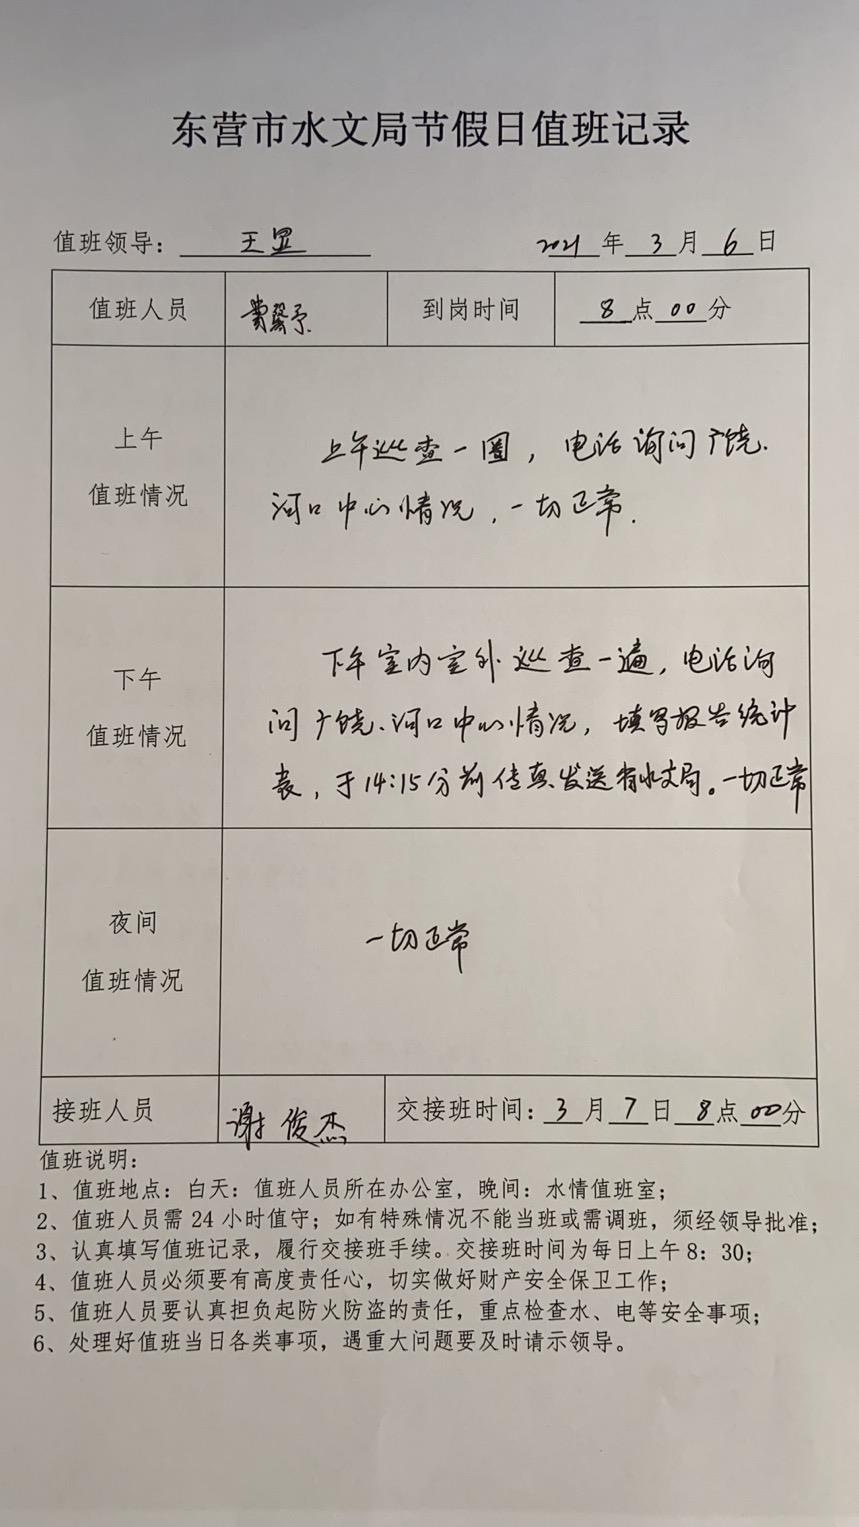 东营市水文局节假日值班记录
值班领导：王昱 2021年3月6日
值班人员 到岗时间 8点00分
上午
值班情况
上午巡查一圈，电话询问广饶、
河口中心情况，一切正常.
下午
值班情况
下午室内室外巡查一遍，电话询
问广饶、河口中心情况，填写报告统计
表，于14:15分前传真发送省水文局。一切正常
夜间
值班情况
一切正常
接班人员 谢俊杰 交接班时间：3月7日8点00分
值班说明：
1、值班地点：白天：值班人员所在办公室，晚间：水情值班室；
2、值班人员需24小时值守；如有特殊情况不能当班或需调班，须经领导批准；
3、认真填写值班记录，履行交接班手续。交接班时间为每日上午8：30；
4、值班人员必须要有高度责任心，切实做好财产安全保卫工作；
5、值班人员要认真担负起防火防盗的责任，重点检查水、电等安全事项；
6、处理好值班当日各类事项，遇重大问题要及时请示领导。